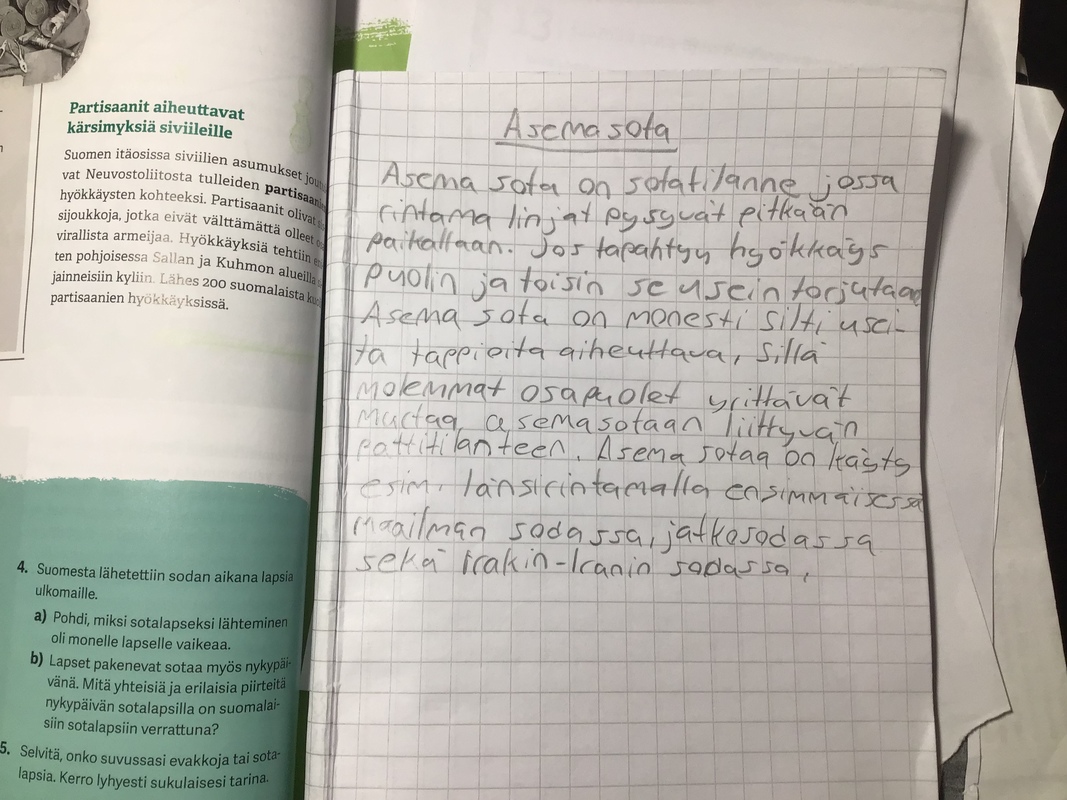 Partisaanit aiheuttavat
kärsimyksiä siviileille
Suomen itäosissa siviilien asumukset
vat Neuvostoliitosta tulleiden
hyökkäysten kohteeksi. Partisaanit olivat
sijoukkoja, jotka eivät välttämättä olleet
virallista armeijaa. Hyökkäyksiä tehtiin
ten pohjoisessa Sallan ja Kuhmon alueilla
jainneisiin kyliin. Lähes 200 suomalaista
partisaanien hyökkäyksissä.
4. Suomesta lähetettiin sodan aikana lapsia
ulkomaille.
a) Pohdi, miksi sotalapseksi lähteminen
oli monelle lapselle vaikeaa.
b) Lapset pakenevat sotaa myös nykypäi-
vänä. Mitä yhteisiä ja erilaisia piirteitä
nykypäivän sotalapsilla on suomalai-
siin sotalapsiin verrattuna?
5. Selvitä, onko suvussasi evakkoja tai sota-
lapsia. Kerro lyhyesti sukulaisesi tarina.
Asema sota
Asema sota on sotatilanne jossa
rintama linjat pysyvät pitkään
paikallaan. Jos tapahtyy hyökkäys
puolin ja toisin se usein torjutaan
Asema sota on monesti silti usei-
ta tappioita aiheuttava, sillä
molemmat osapuolet yrittävät
muuttaa asemasotaan liittyvän
pattitilanteen. Asema sotaa on käyty
esim. länsirintamalla ensimmäisessä
maailman sodassa, jatkosodassa
sekä Irakin-Iranin sodassa.